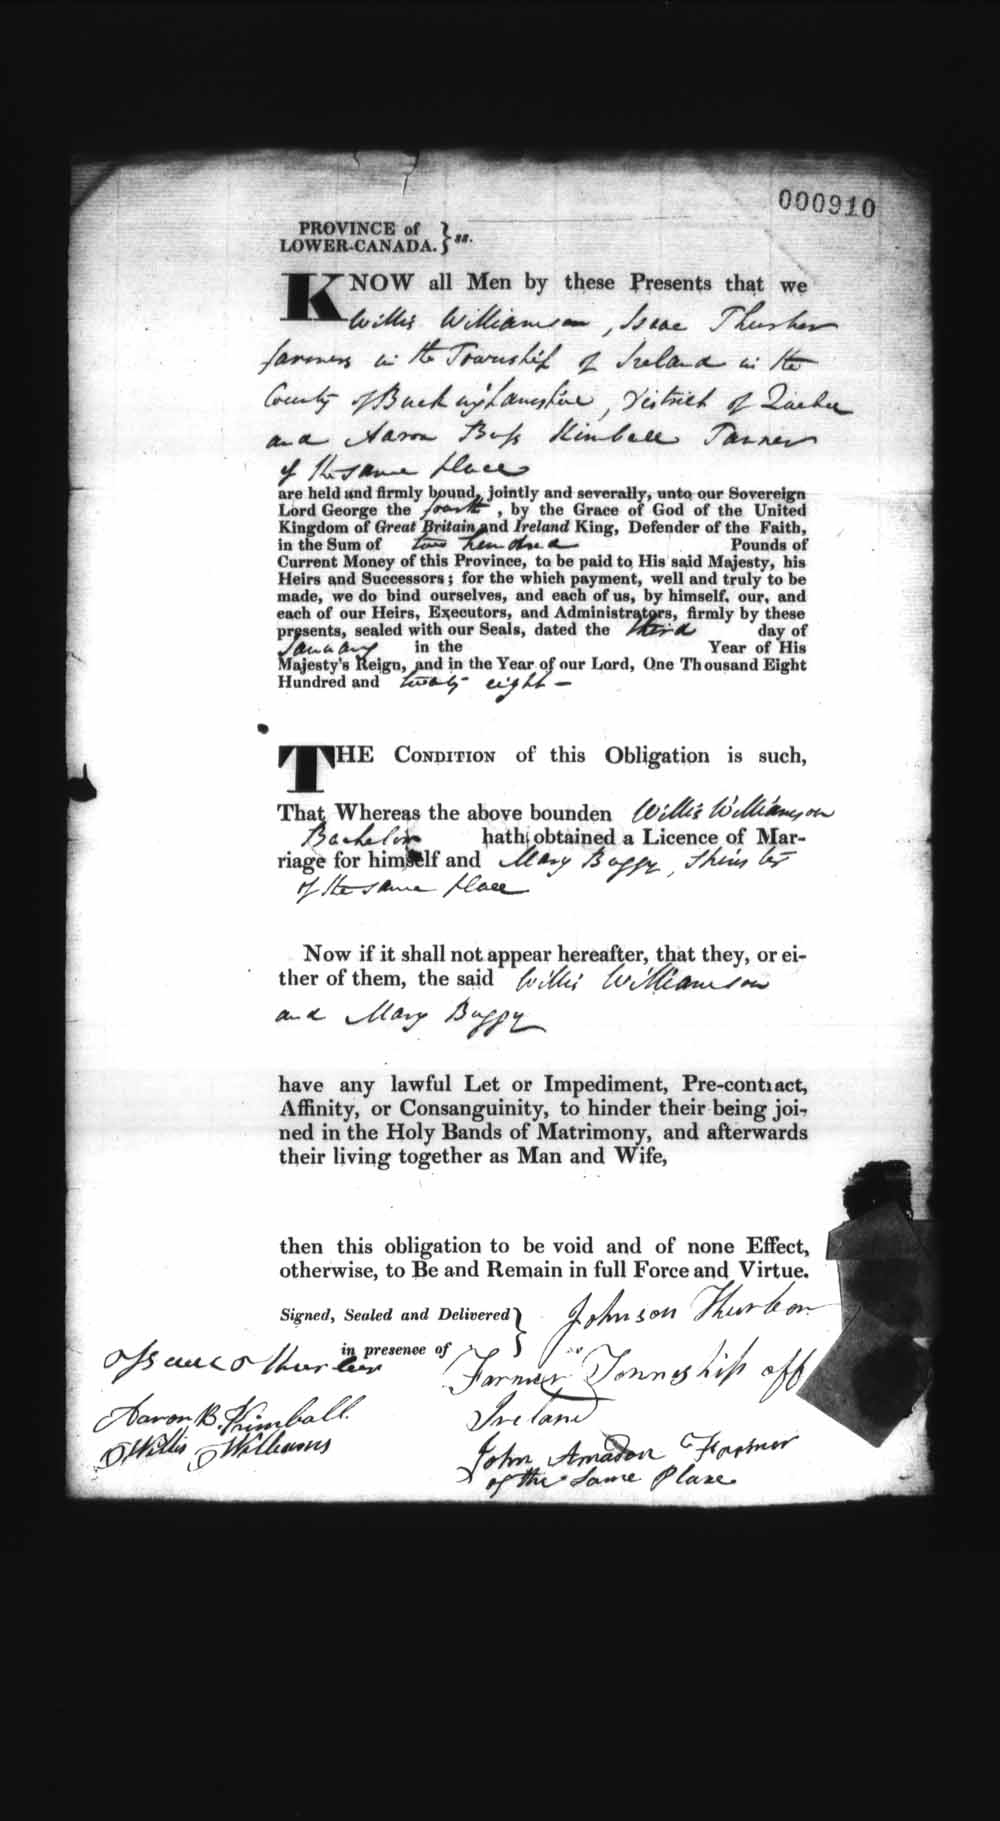 000910
PROVINCE of
LOWER-CANADA. } ss.
KNOW all Men by these Presents that we
Willis Williamson, Isaac Thurber
farmers in the Township of Ireland in the
County of Buckinghamshire, District of Quebec
and Aaron Bass Kimball Tanner
of the same place
are held and firmly bound, jointly and severally, unto our Sovereign
Lord George the fourth, by the Grace of God of the United
Kingdom of Great Britain and Ireland King, Defender of the Faith,
in the Sum of two hundred Pounds of
Current Money of this Province, to be paid to His said Majesty, his
Heirs and Successors; for the which payment, well and truly to be
made, we do bind ourselves, and each of us, by himself, our, and
each of our Heirs, Executors, and Administrators, firmly by these
presents, sealed with our Seals, dated the third day of
January in the Year of His
Majesty's Reign, and in the Year of our Lord, One Thousand Eight
Hundred and twenty eight —
THE CONDITION of this Obligation is such,
That Whereas the above bounden Willis Williamson
Bachelor hath obtained a Licence of Mar-
riage for himself and Mary Baggy, Spinster
of the same place
Now if it shall not appear hereafter, that they, or ei-
ther of them, the said Willis Williamson
and Mary Baggy
have any lawful Let or Impediment, Pre-contract,
Affinity, or Consanguinity, to hinder their being joi-
ned in the Holy Bands of Matrimony, and afterwards
their living together as Man and Wife,
then this obligation to be void and of none Effect,
otherwise, to Be and Remain in full Force and Virtue.
Signed, Sealed and Delivered }
in presence of
Johnson Thurber
Farmer Township off
Ireland
John Amadon Farmer
of the Same Place
Isaac Thurber
Aaron B. Kimball.
Willis Williams